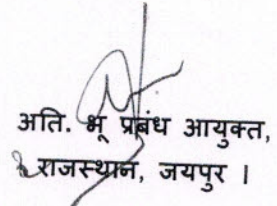 अति. भू प्रबंध आयुक्त,
राजस्थान, जयपुर ।